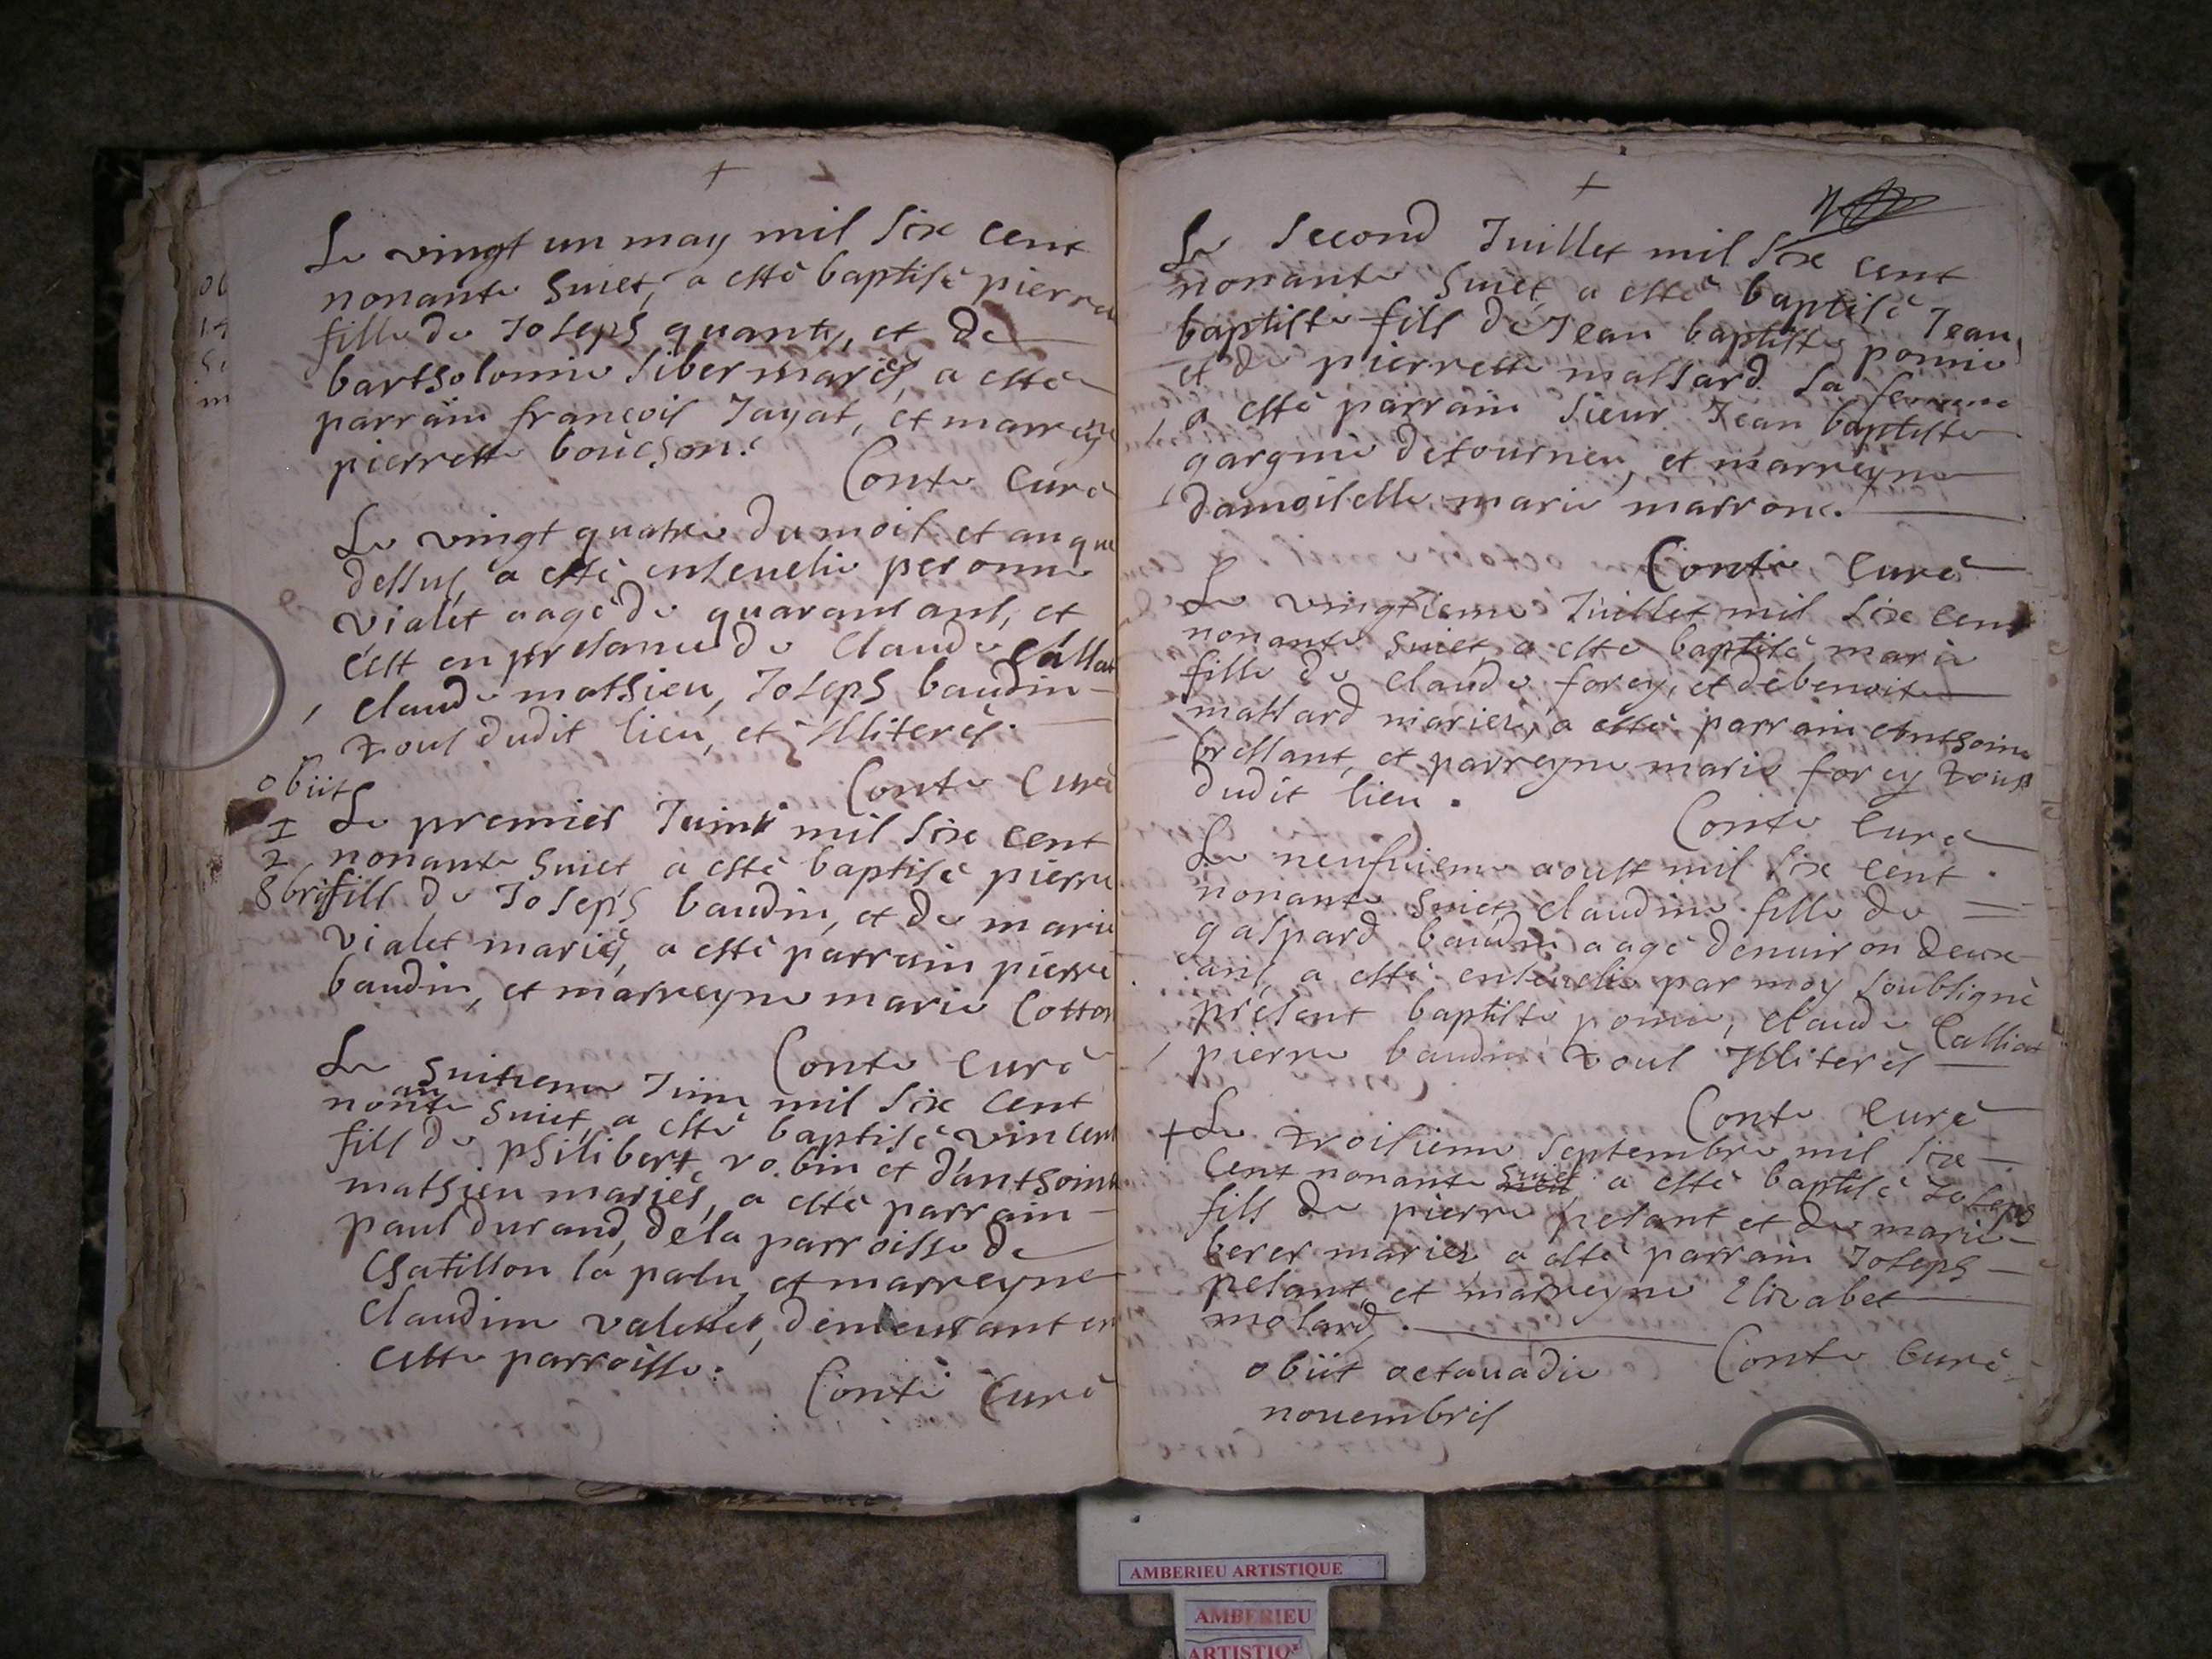 Le vingt un may mil six cent
nonante huict, a esté baptisé pierre
fille de Joseph quanty, et de
bartholomie siber mariés, a esté
parrain françois Jayat, et marreyne
pierrette bouchon.
Conte Curé
Le vingt quatre du mois et an que
dessus, a esté enseuelie peronne
vialet aagé de quarant ans, et
c'est en presance de Claude Calliat
claude mathieu, Joseph baudin
tous dudit lieu, et Illiterés.
Conte Curé
obiit
1
2
8bris
Le premier Juin mil six cent
nonante huict a esté baptisé pierre
fils de Joseph baudin, et de marie
vialet mariés, a esté parrain pierre
baudin, et marreyne marie Cotton
Conte Curé
Le huitieme Juin mil six cent
nonante huict, a esté baptisé vincent
fils de philibert robin et d'anthoinete
mathieu mariés, a esté parrain
paul durand, de la parroisse de
Chatillon la palu, et marreyne
Claudine valettes, demeurant en
cette parroisse.
Conte Curé
Le second Juillet mil six cent
nonante huict, a esté baptisé Jean
baptiste fils de Jean baptiste pomie
et de pierrette massard sa femme
a esté parrain sieur Jean baptiste
gargine detourneu, et marreyne
damoiselle marie marrone.
Conte Curé
Le vingtieme Juillet mil six cent
nonante huict, a esté baptisé marie
fille de claude forey, et de benoite
massard mariés, a esté parrain Anthoine
bressant, et parreyne marie forey tous
dudit lieu.
Conte Curé
Le neufuieme aoust mil six cent
nonante huict, claudine fille de
gaspard baudin aagé denuiron deux
ans, a esté enseuelie par moy soubsigné
présant baptiste pomie, claude Calliat
pierre baudin tous Illiterés
Conte Curé
+ Le troisieme septembre mil six
cent nonante huict a esté baptisé Joseph
fils de pierre pesant et de marie
berer mariés, a esté parrain Joseph
pesant et marreyne Elizabet
molard.
Conte Curé
obiit octaua die
nouembris
AMBERIEU ARTISTIQUE
AMBERIEU
ARTISTIQ